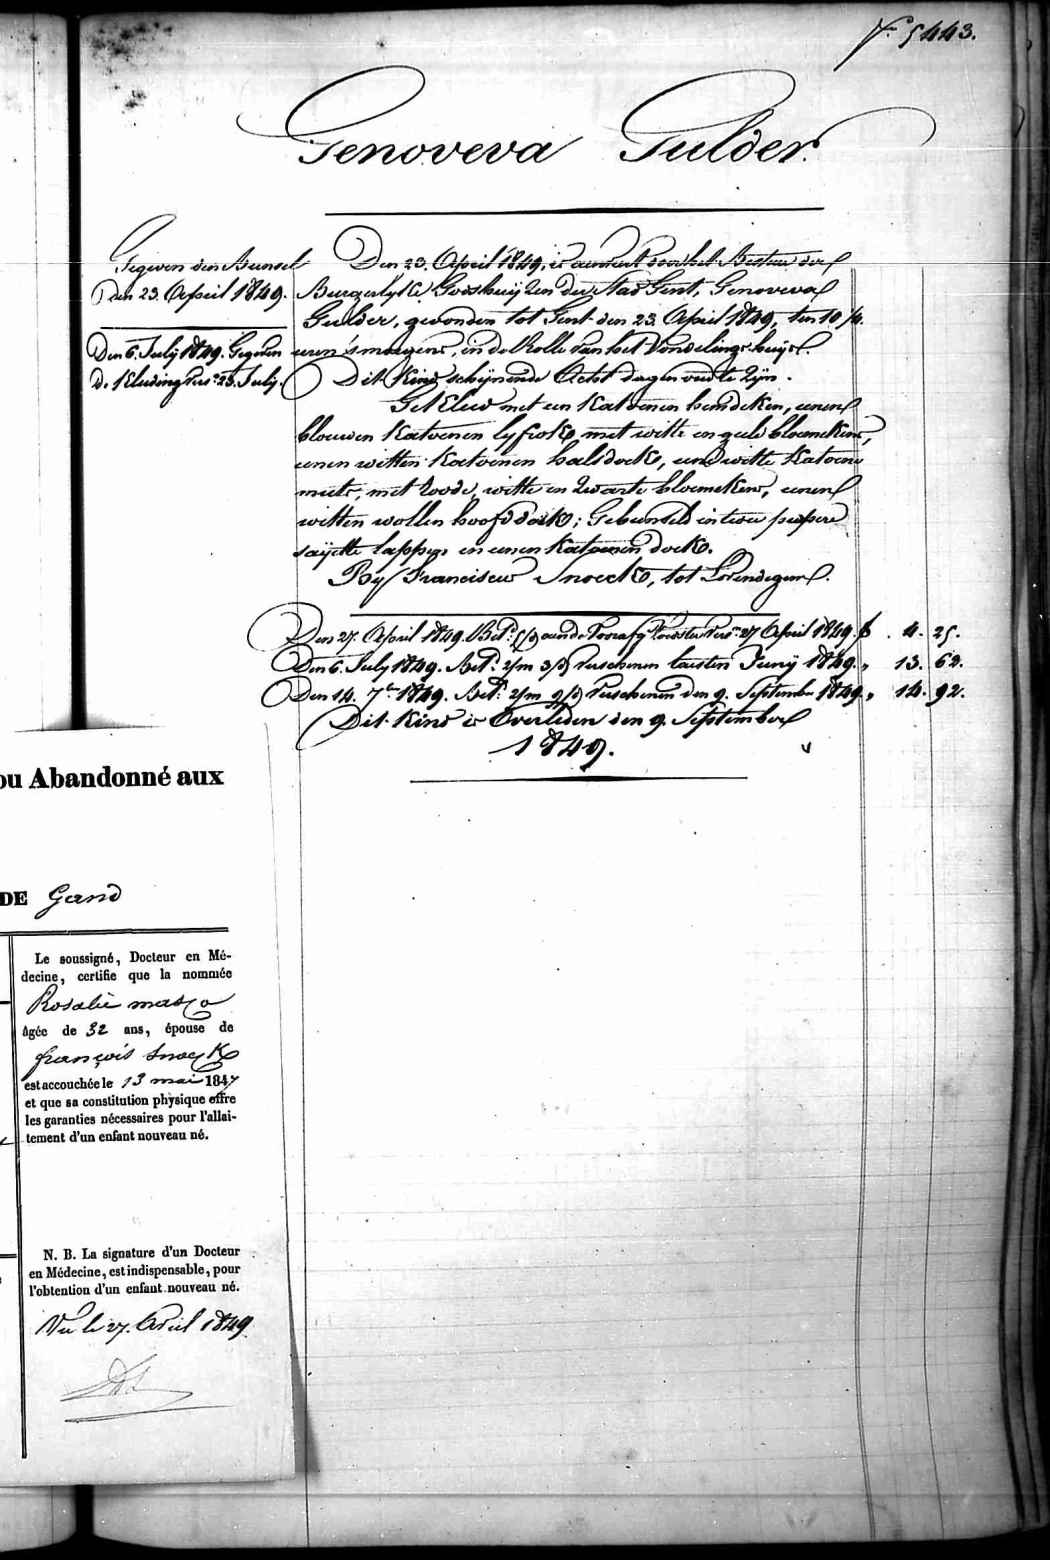 N.º 5443.
Genoveva Gulder.
Gegeven den Bunsel
den 23. April 1849.
Den 6. July 1849. Gegeven
de Kleeding Pers.ᵉ 23. July.
Den 23. April 1849, is aenveert door het Bestier der
Burgerlyke Godshuyzen der Stad Gent, Genoveva
Gulder, gevonden tot Gent den 23. April 1849, ten 10 /4.
uren 's morgens, in de Rolle van het Vondelings huys.
Dit Kind schynende Acht dagen oud te Zyn.
Gekleed met een Katoenen hemdeken, eenen
blouwen Katoenen lyfrok, met witte en geele bloemekens,
eenen witten Katoenen halsdoek, eene witte Katoene
muts, met roode, witte en Zwarte bloemekens, eenen
witten wollen hoofddoek; Gebunseld in twee peirpere
sayette lappen en eenen Katoenen doek.
By Franciscus Snoeck, tot Lovendegem.
Den 27. April 1849. Bet.ᵈ aen de Voester Pers.ᵉ 27 April 1849. f . 4. 25.
Den 6. July 1849. Bet.ᵈ 2/m 3/d verschenen laesten Juny 1849. „ 13. 62.
Den 14. 7.ᵇʳᵉ 1849. Bet.ᵈ 2/m 9/d verschenen den 9. September 1849. „ 14. 92.
Dit Kind is Overleden den 9. September
1849.
ou Abandonné aux
DE Gand
Le soussigné, Docteur en Mé-
decine, certifie que la nommée
Rosalie
âgée de 32 ans, épouse de
françois Snoeck
est accouchée le 13 mai 1847
et que sa constitution physique offre
les garanties nécessaires pour l'allai-
tement d'un enfant nouveau né.
N. B. La signature d'un Docteur
en Médecine, est indispensable, pour
l'obtention d'un enfant nouveau né.
Vu le 27. Avril 1849.